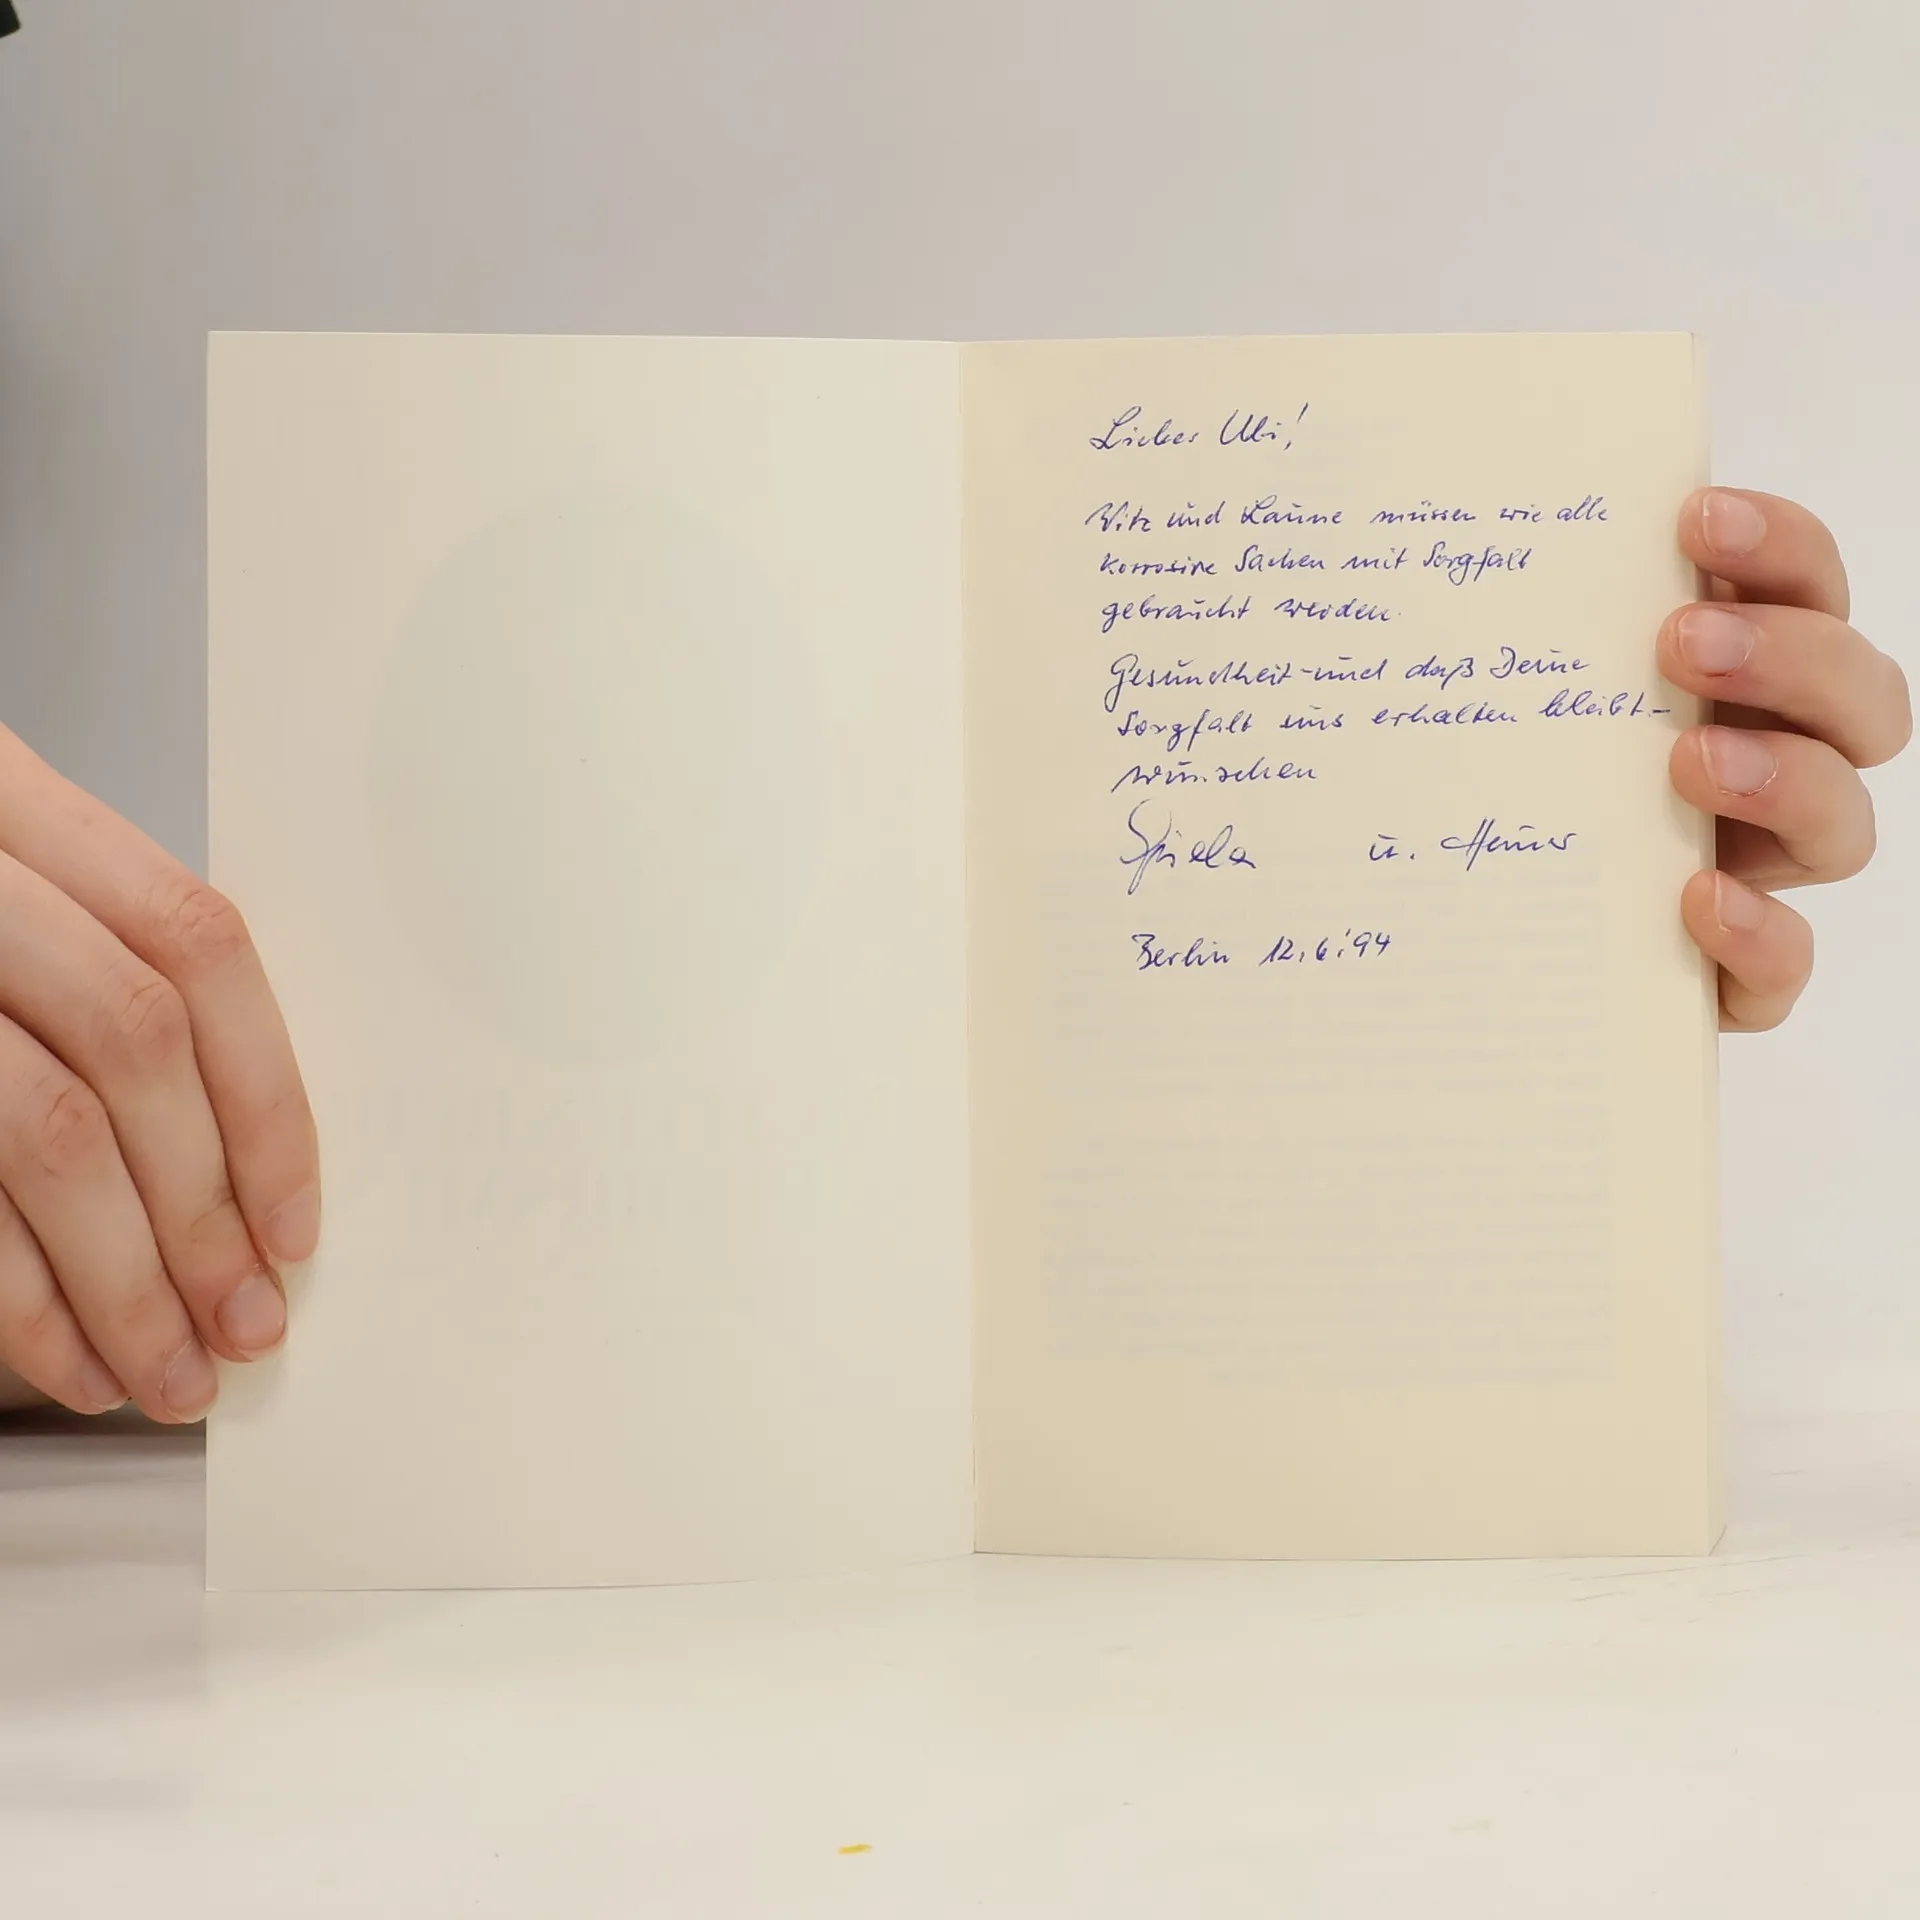 Lieber Uli!
Witz und Laune müssen wie alle
korrosive Sachen mit Sorgfalt
gebraucht werden.
Gesundheit - und daß Deine
Sorgfalt uns erhalten bleibt. -
wünschen
u. Heiner
Berlin 12.6.'94